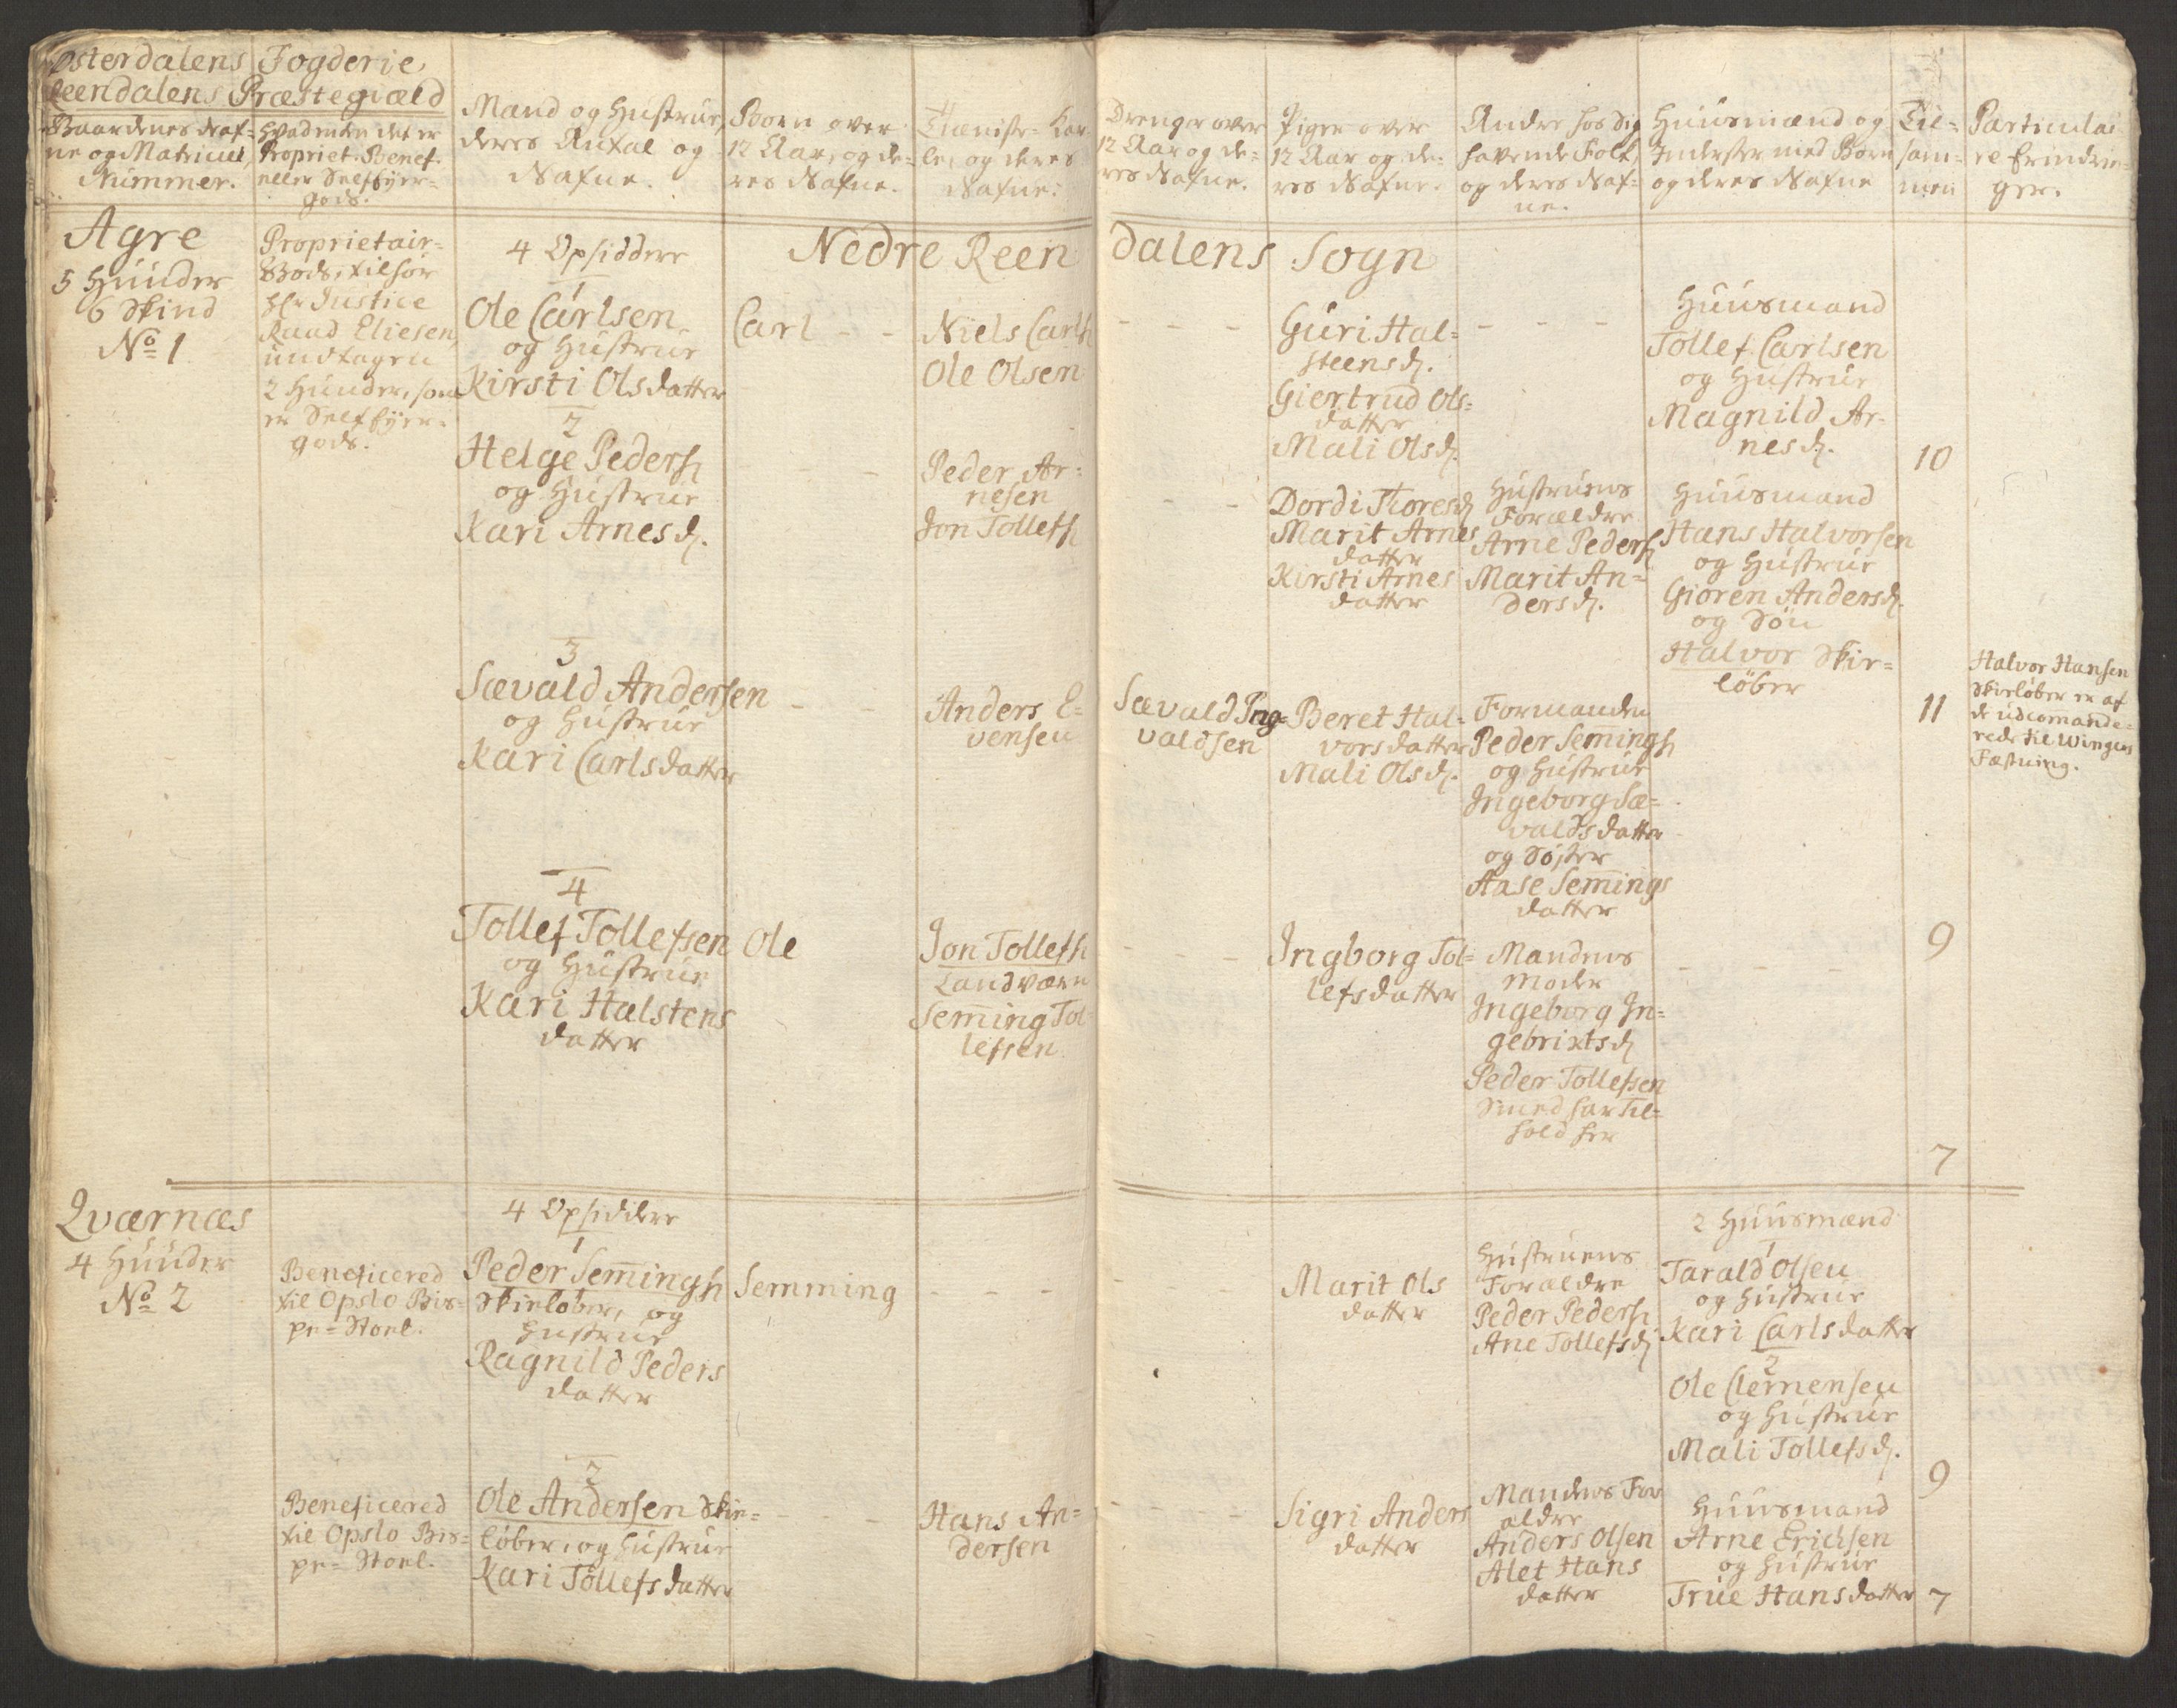 Østerdalens Fogderie
Reendalens Præstegiæld
Gaardenes Naf-
ne og Matricul
Nummer.
Hvad enten det er
Propriet. Benef.
eller Selfeyer-
gods.
Mand og Hustrue,
deres Antal og
Nafne.
Børn over
12 Aar, og de-
res Nafne.
Tieniste-Kar-
le, og deres
Nafne.
Drenge over
12 Aar og de-
res Nafne.
Piger over
12 Aar og de-
res Nafne.
Andre hos sig
havende Folk,
og deres Naf-
ne.
Huusmænd og
Inderster med Børn
og deres Nafne
Til-
sam-
men
Particulai-
re Erindrin-
ger.
Nedre Reendalens Sogn
Agre
5 Hunder
6 Skind
No 1
Proprietair-
Gods, tilhør
Hr Justice
Raad Eliesen
undtagen
2 Hunder, som
er Selfeyer-
gods.
4 Opsiddere
1
Ole Carlsen
og Hustrue
Kirsti Olsdatter
Carl - -
Niels Carls.
Ole Olsen
- - -
Guri Hal-
steensd.
Giertrud Ols-
datter
Mali Olsd.
- - -
Huusmand
Tollef Carlsen
og Hustrue
Magnild Ar-
nesd.
10
2
Helge Peders.
og Hustrue
Kari Arnesd.
- -
Peder Ar-
nesen
Jon Tollefs.
- -
Dordi Toresd.
Marit Arnes
datter
Kirsti Arnes
datter
Hustruens
Forældre
Arne Peders.
Marit An-
dersd.
Huusmand
Hans Halvorsen
og Hustrue
Gioren Andersd.
og Søn
Halvor Skie-
løber
11
Halvor Hansen
Skieløber er af
de udcomande-
rede til Winger
Fæstning.
3
Sævald Andersen
og Hustrue
Kari Carlsdatter
- -
Anders E-
vensen
Sævald Ing-
valdsen
Beret Hal-
vorsdatter
Mali Olsd.
Formanden
Peder Semings.
og Hustrue
Ingeborg Sæ-
valdsdatter
og Søster
Aase Semings
datter
9
4
Tollef Tollefsen
og Hustrue
Kari Halstens
datter
Ole
Jon Tollefs.
Landværn
Seming Tol-
lefsen
- - -
Ingborg Tol-
lefsdatter
Mandens
Moder
Ingeborg In-
gebrixtsd.
Peder Tollefsen
Smed har Til-
hold her
- - -
7
Qværnæs
4 Hunder
No 2
Beneficered
til Opslo Bis-
pe-Stoel.
4 Opsiddere
1
Peder Semings.
Skieløber, og
Hustrue
Ragnild Peders
datter
Semming
- - -
- -
Marit Ols
datter
Hustruens
Forældre
Peder Peders.
Ane Tollefsd.
2 Huusmænd
1
Tarald Olsen
og Hustrue
Kari Carlsdatter
2
Ole Clemensen
og Hustrue
Mali Tollefsd.
9
Beneficered
til Opslo Bis-
pe-Stoel.
2
Ole Andersen Skie-
løber, og Hustrue
Kari Tollefsdatter
- - -
Hans An-
dersen
- - -
Sigri Anders
datter
Mandens For
ældre
Anders Olsen
Alet Hans
datter
Huusmand
Arne Erichsen
og Hustrue
True Hansdatter
7